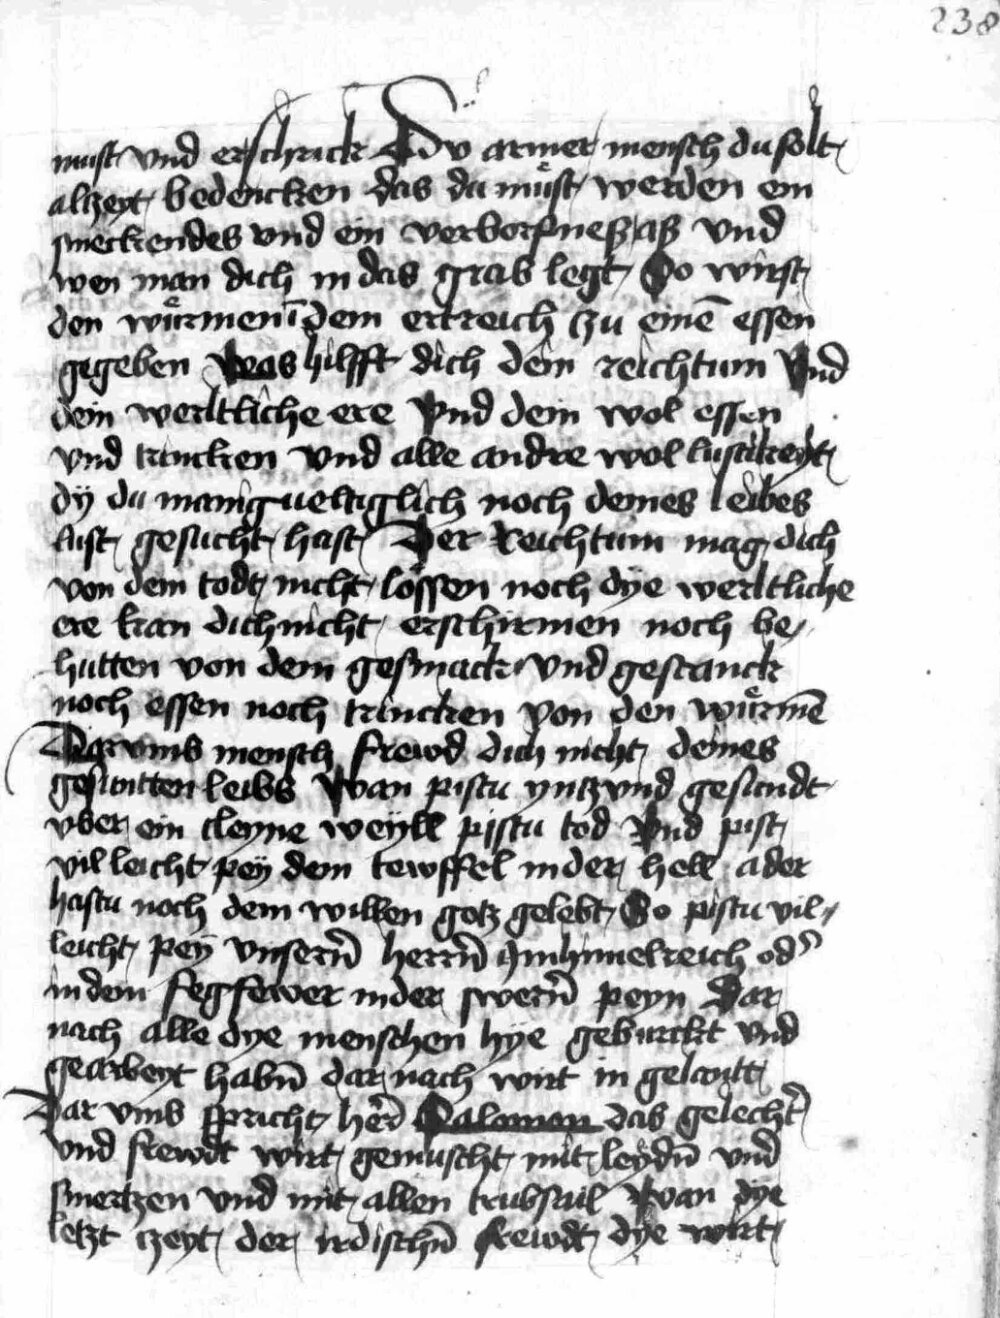 238
must vnd erschrick Dv armer mensch du solt
alczeyt bedencken das du mu̎st werden ein
smeckendes vnd ein verborfnes aß vnd
wen man dich in das grab legt So wirst
den wu̎rmen ī dem ertreich czu einē essen
gegeben was hilfft dich dein reichtum Vnd
dein werltliche ere Vnd dein wol essen
vnd trincken vnd alle andre wollustikeyt
dÿ du manigueltiglich noch deines leibes
lust gesucht hast Der Reichtum mag dich
von dem todt nicht lössen noch dÿe werltliche
ere kan dich nicht erschirmen noch be
hutten von dem gesmack vnd gestanck
noch essen noch trincken von den wu̎rmē
Darvmb mensch frewd dich nicht deines
gesuntten leibs Wan pistu yntzvnd gesundt
vber ein cleyne weyll pistu tod Vnd pist
villeicht peÿ dem tewffel in der hell ader
hastu noch dem willen gotz gelebt So pistu vil
leicht peÿ vnsern̄ herrn̄ ym himelreich od᾽
in dem fegfewer in der swern̄ peyn Dar
nach alle dye menschen hÿe gewurckt vnd
gearbeyt habn̄ dar nach wirt in gelontt
Dar vmb spricht her̄ Salomon das gelecht᾽
vnd frewdt wirt gemuscht mit leÿdn̄ vnd
smertzen vnd mit allen trubsail Wan dÿe
letzt czeyt der irdischn̄ frewdt dÿe wirt